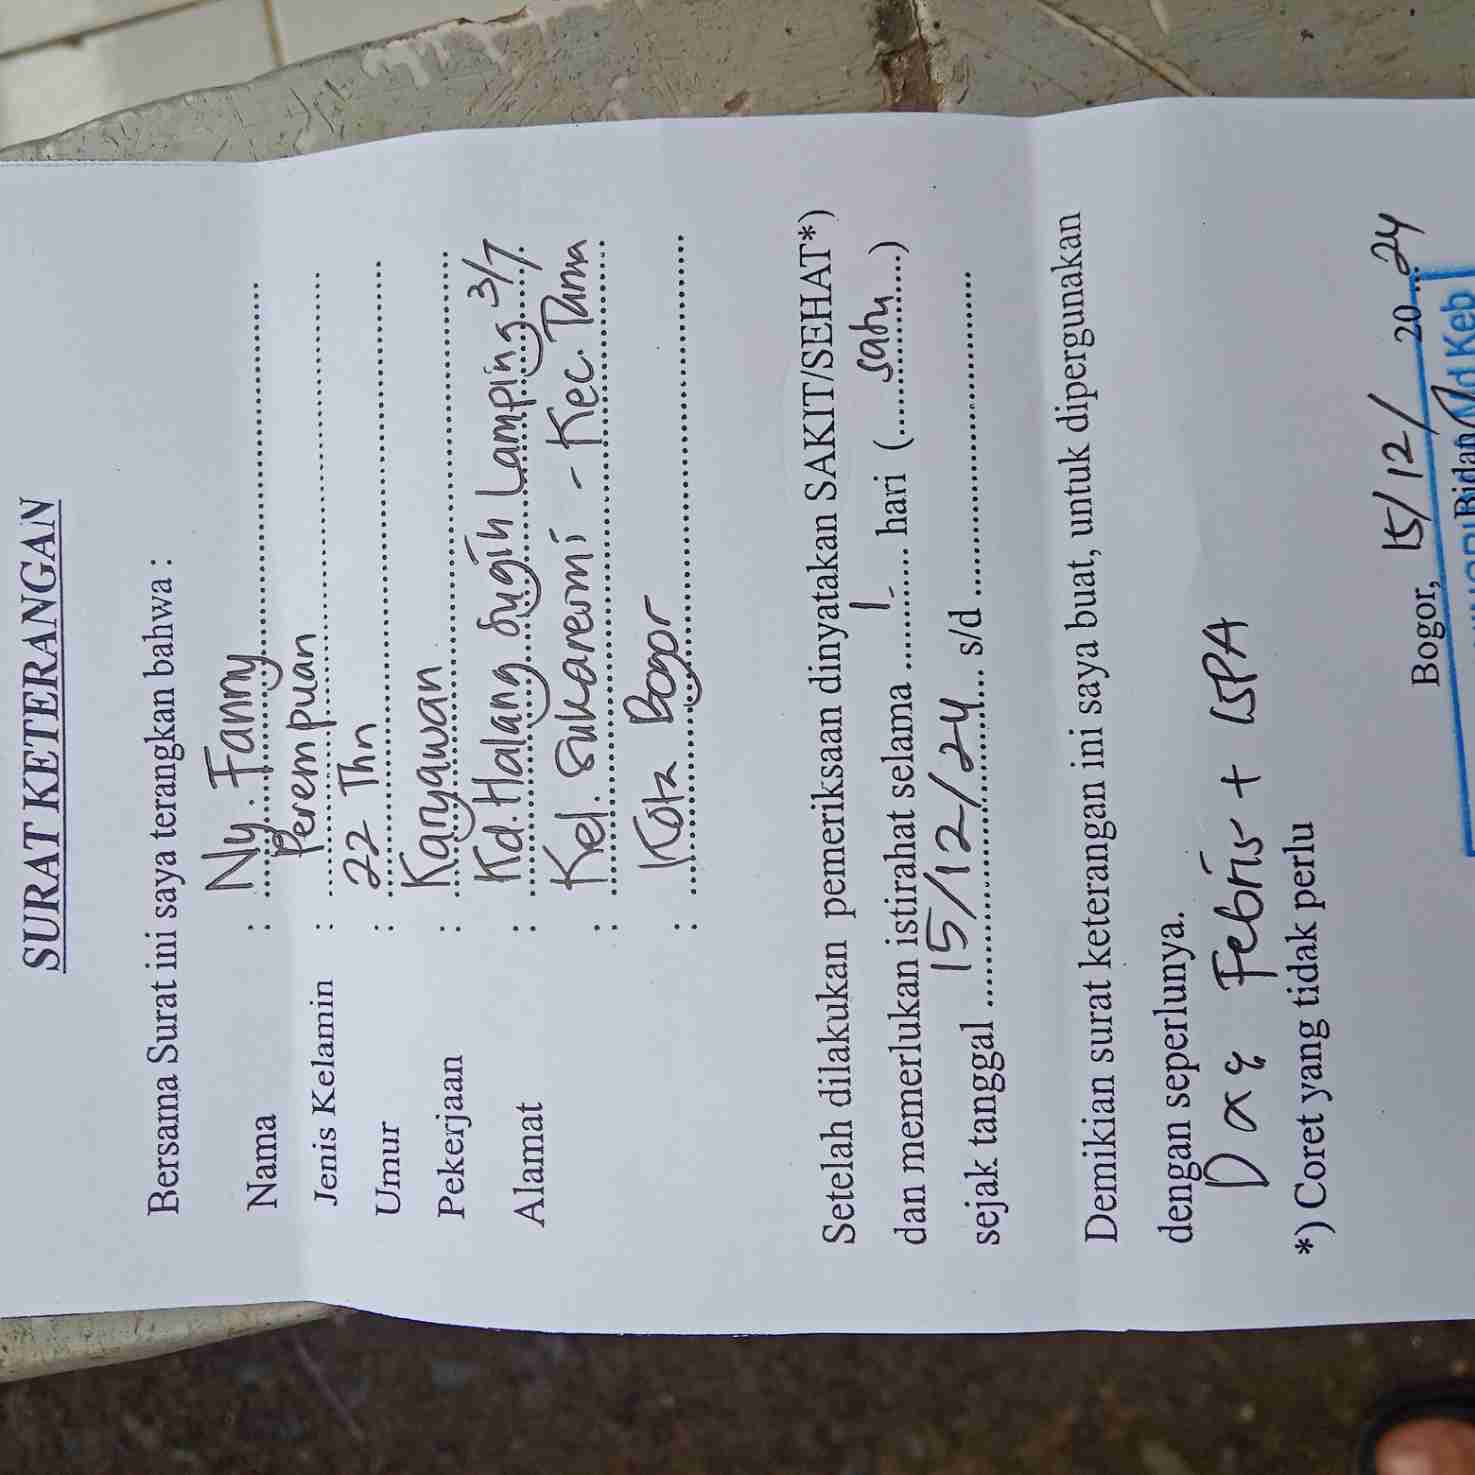 SURAT KETERANGAN
Bersama Surat ini saya terangkan bahwa :
Nama : Ny. Fanny
Jenis Kelamin : Perempuan
Umur : 22 Thn
Pekerjaan : Karyawan
Alamat : Kd. Halang Sugih Lamping 3/7
: Kel. Sukaresmi - Kec. Tansa
: Kota Bogor
Setelah dilakukan pemeriksaan dinyatakan SAKIT/SEHAT*)
dan memerlukan istirahat selama 1 hari (satu)
sejak tanggal 15/12/24 s/d
Demikian surat keterangan ini saya buat, untuk dipergunakan
dengan seperlunya.
Febris + ISPA
*) Coret yang tidak perlu
Bogor, 15/12/2024
Bidan Md Keb